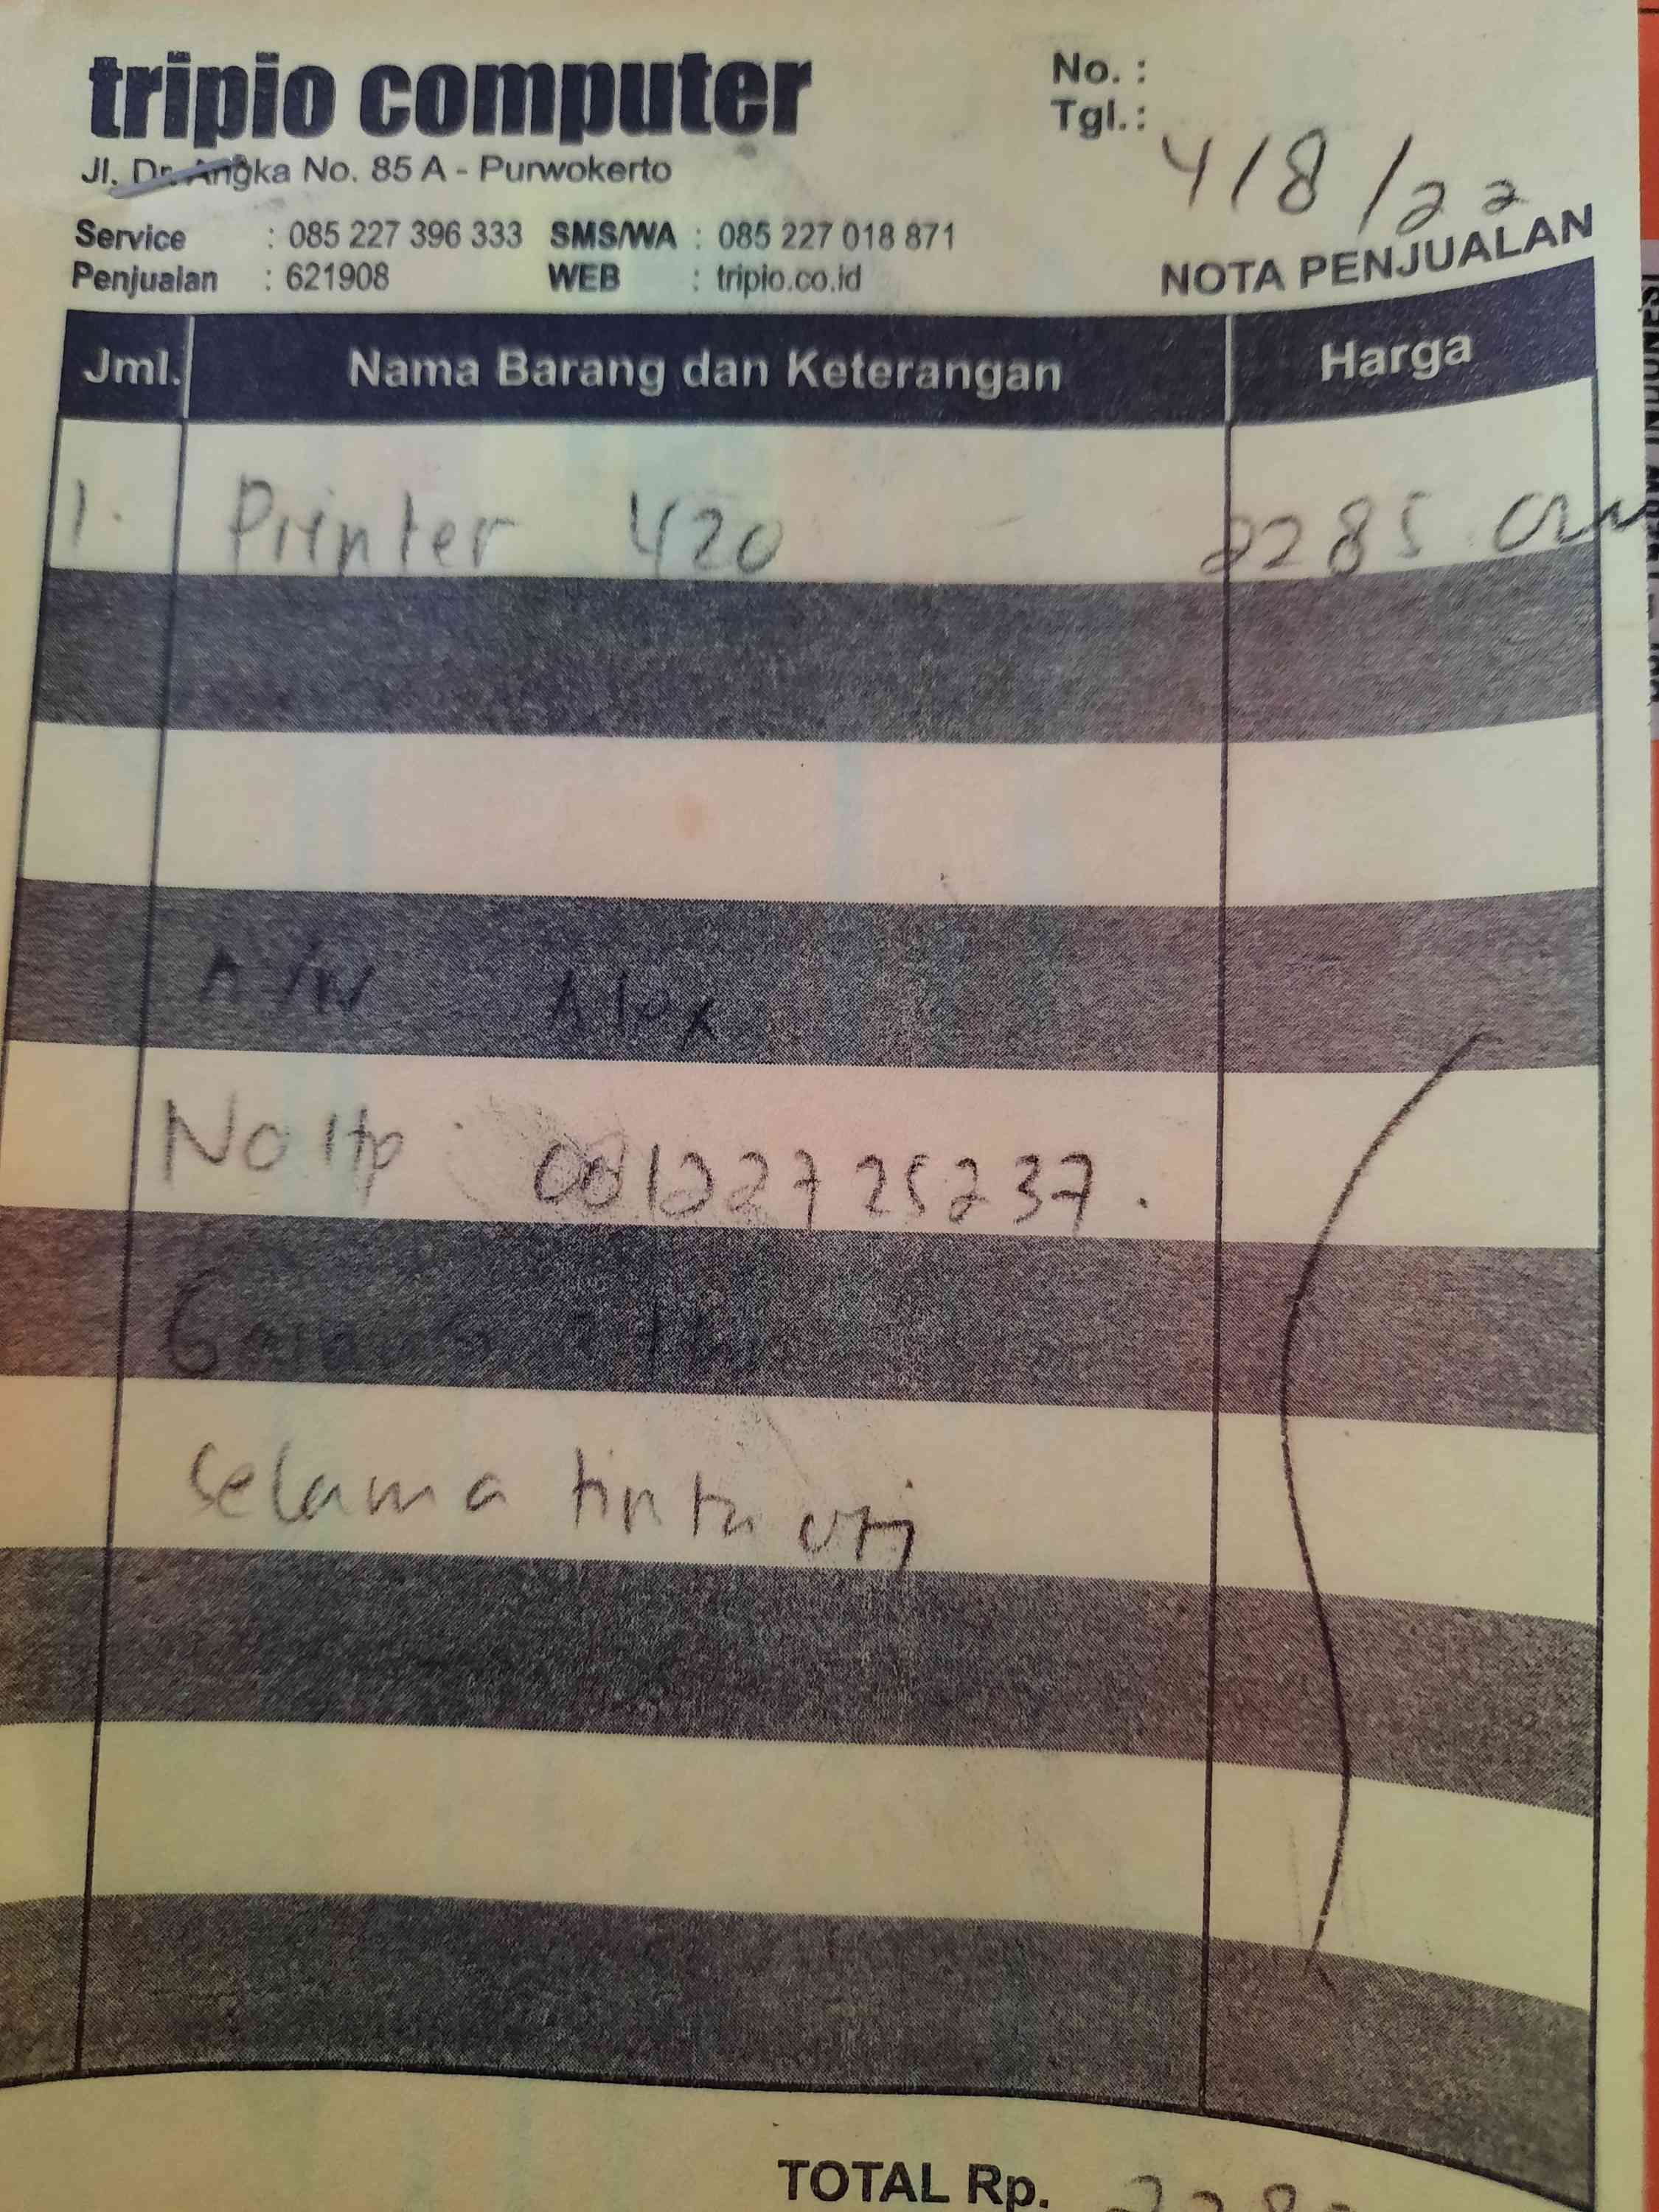 tripio computer
No. :
Tgl.: 4/8/22
Jl. Dr. Angka No. 85 A - Purwokerto
Service : 085 227 396 333 SMS/WA : 085 227 018 871
Penjualan : 621908 WEB : tripio.co.id
NOTA PENJUALAN
Jml. Nama Barang dan Keterangan Harga
1. Printer 420 2285.000
A/N Alex
No Hp 081227725237.
selama tinta ori
TOTAL Rp.